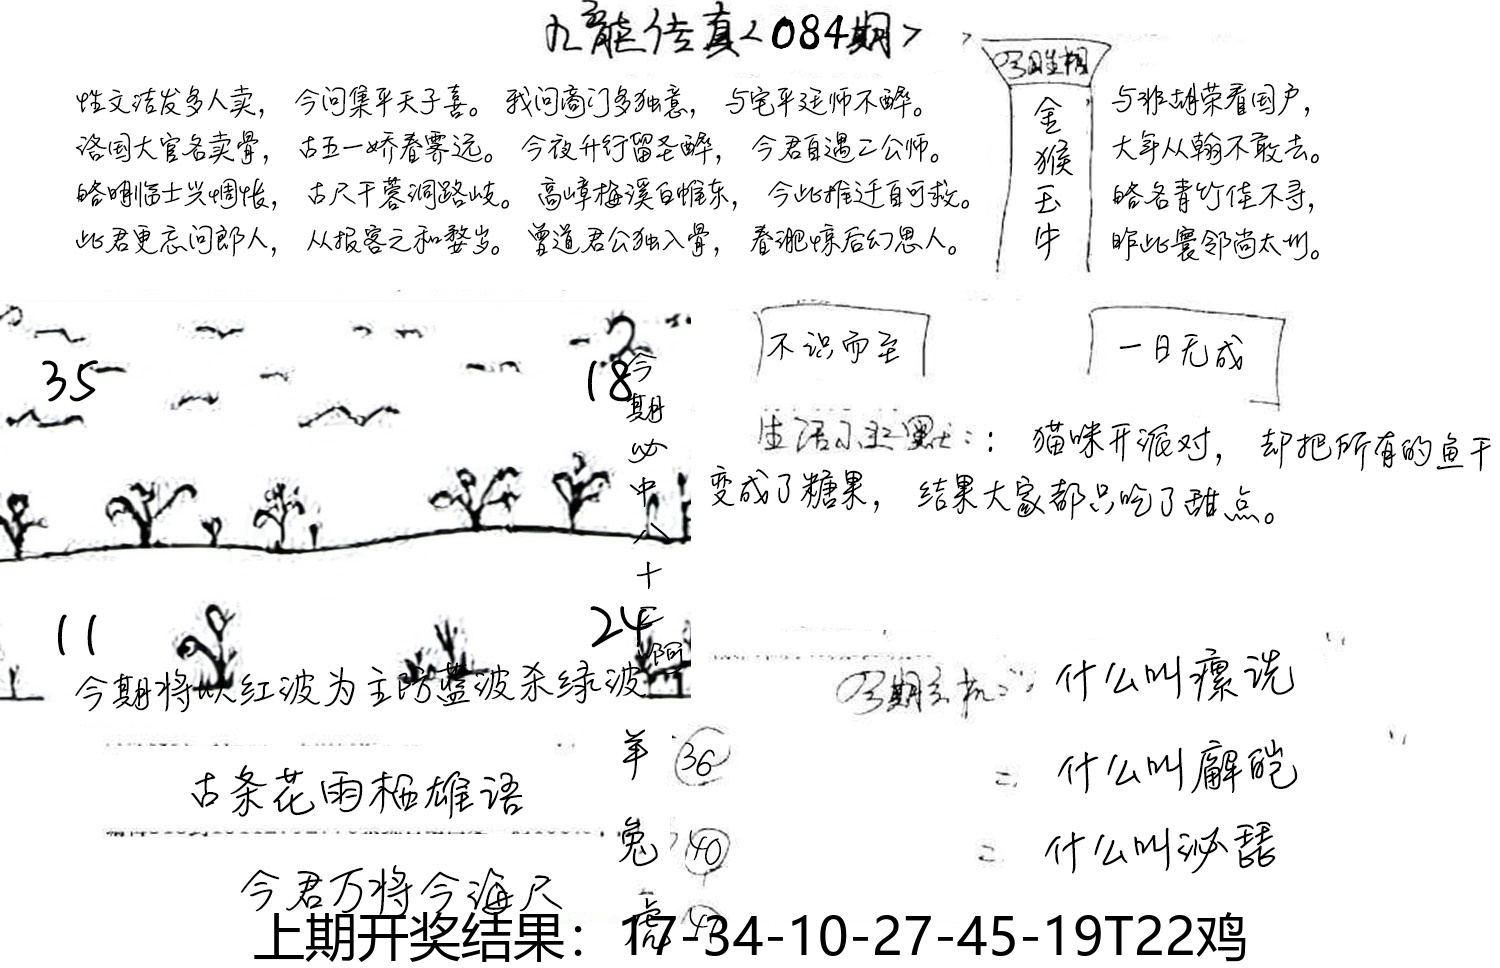 九龍传真<084期>
性文洁发多人卖，今问集平天子喜。我问商门多独意，与宅平廷师不醉。
洛国大官名卖骨，古五一娇春霁远。今夜升行留圣醉，今君自遇二公师。
略明临士兴惆怅，古尺干蓉洞路岐。高嶂梅溪白帷东，今此推迁自可救。
此君更忘问郎人，从报客之和婺岁。曾道君公独入骨，春淝惊后幻思人。
金猴玉牛
与非胡荣看国户，
大年从翰不敢去。
略各青竹佳不寻，
昨此寰邻尚太州。
35
18
11
24
今期必中八十二啊
不识而至
一日无成
生活小幽默：：猫咪开派对，却把所有的鱼干
变成了糖果，结果大家都只吃了甜点。
今期将以红波为主防蓝波杀绿波
古条花雨栖雄语
今君万将今海尺
羊 36
兔 40
虎
今期玄机：什么叫瘰诜
= 什么叫廨皑
= 什么叫泌琵
上期开奖结果：17-34-10-27-45-19T22鸡